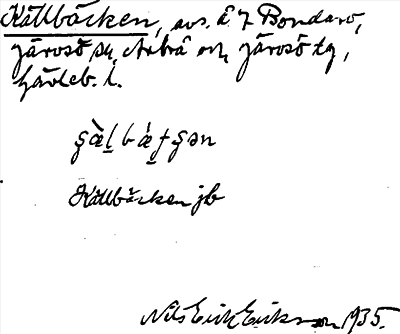 Källbäcken, avs. å 7 Bondarv,
Järvsö sn, Arbrå och Järvsö tg,
Gävleb. l.
Källbäcken jb
Nils Erik Eriksson 1935.